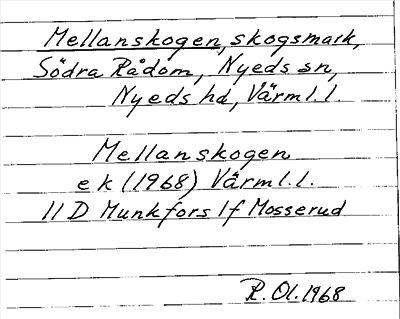 Mellanskogen, skogsmark,
Södra Rådom, Nyeds sn,
Nyeds hd, Värml. l.
Mellanskogen
ek (1968) Värml. l.
11 D Munkfors 1f Mosserud
R. Ol. 1968